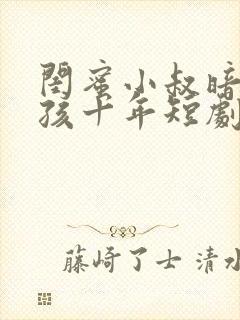 閨蜜小叔暗
孩十年短劇
藤崎了士 清水